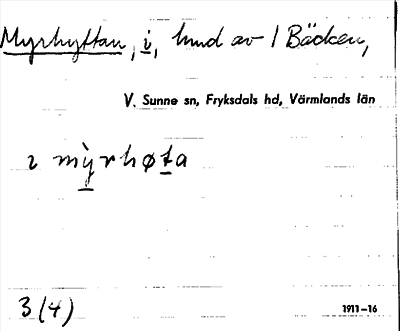 Myrhyttan, i, hmd av 1 Bäcken,
V. Sunne sn, Fryksdals hd, Värmlands län
ɩ mỳrhøta
3 (4)
1911-16